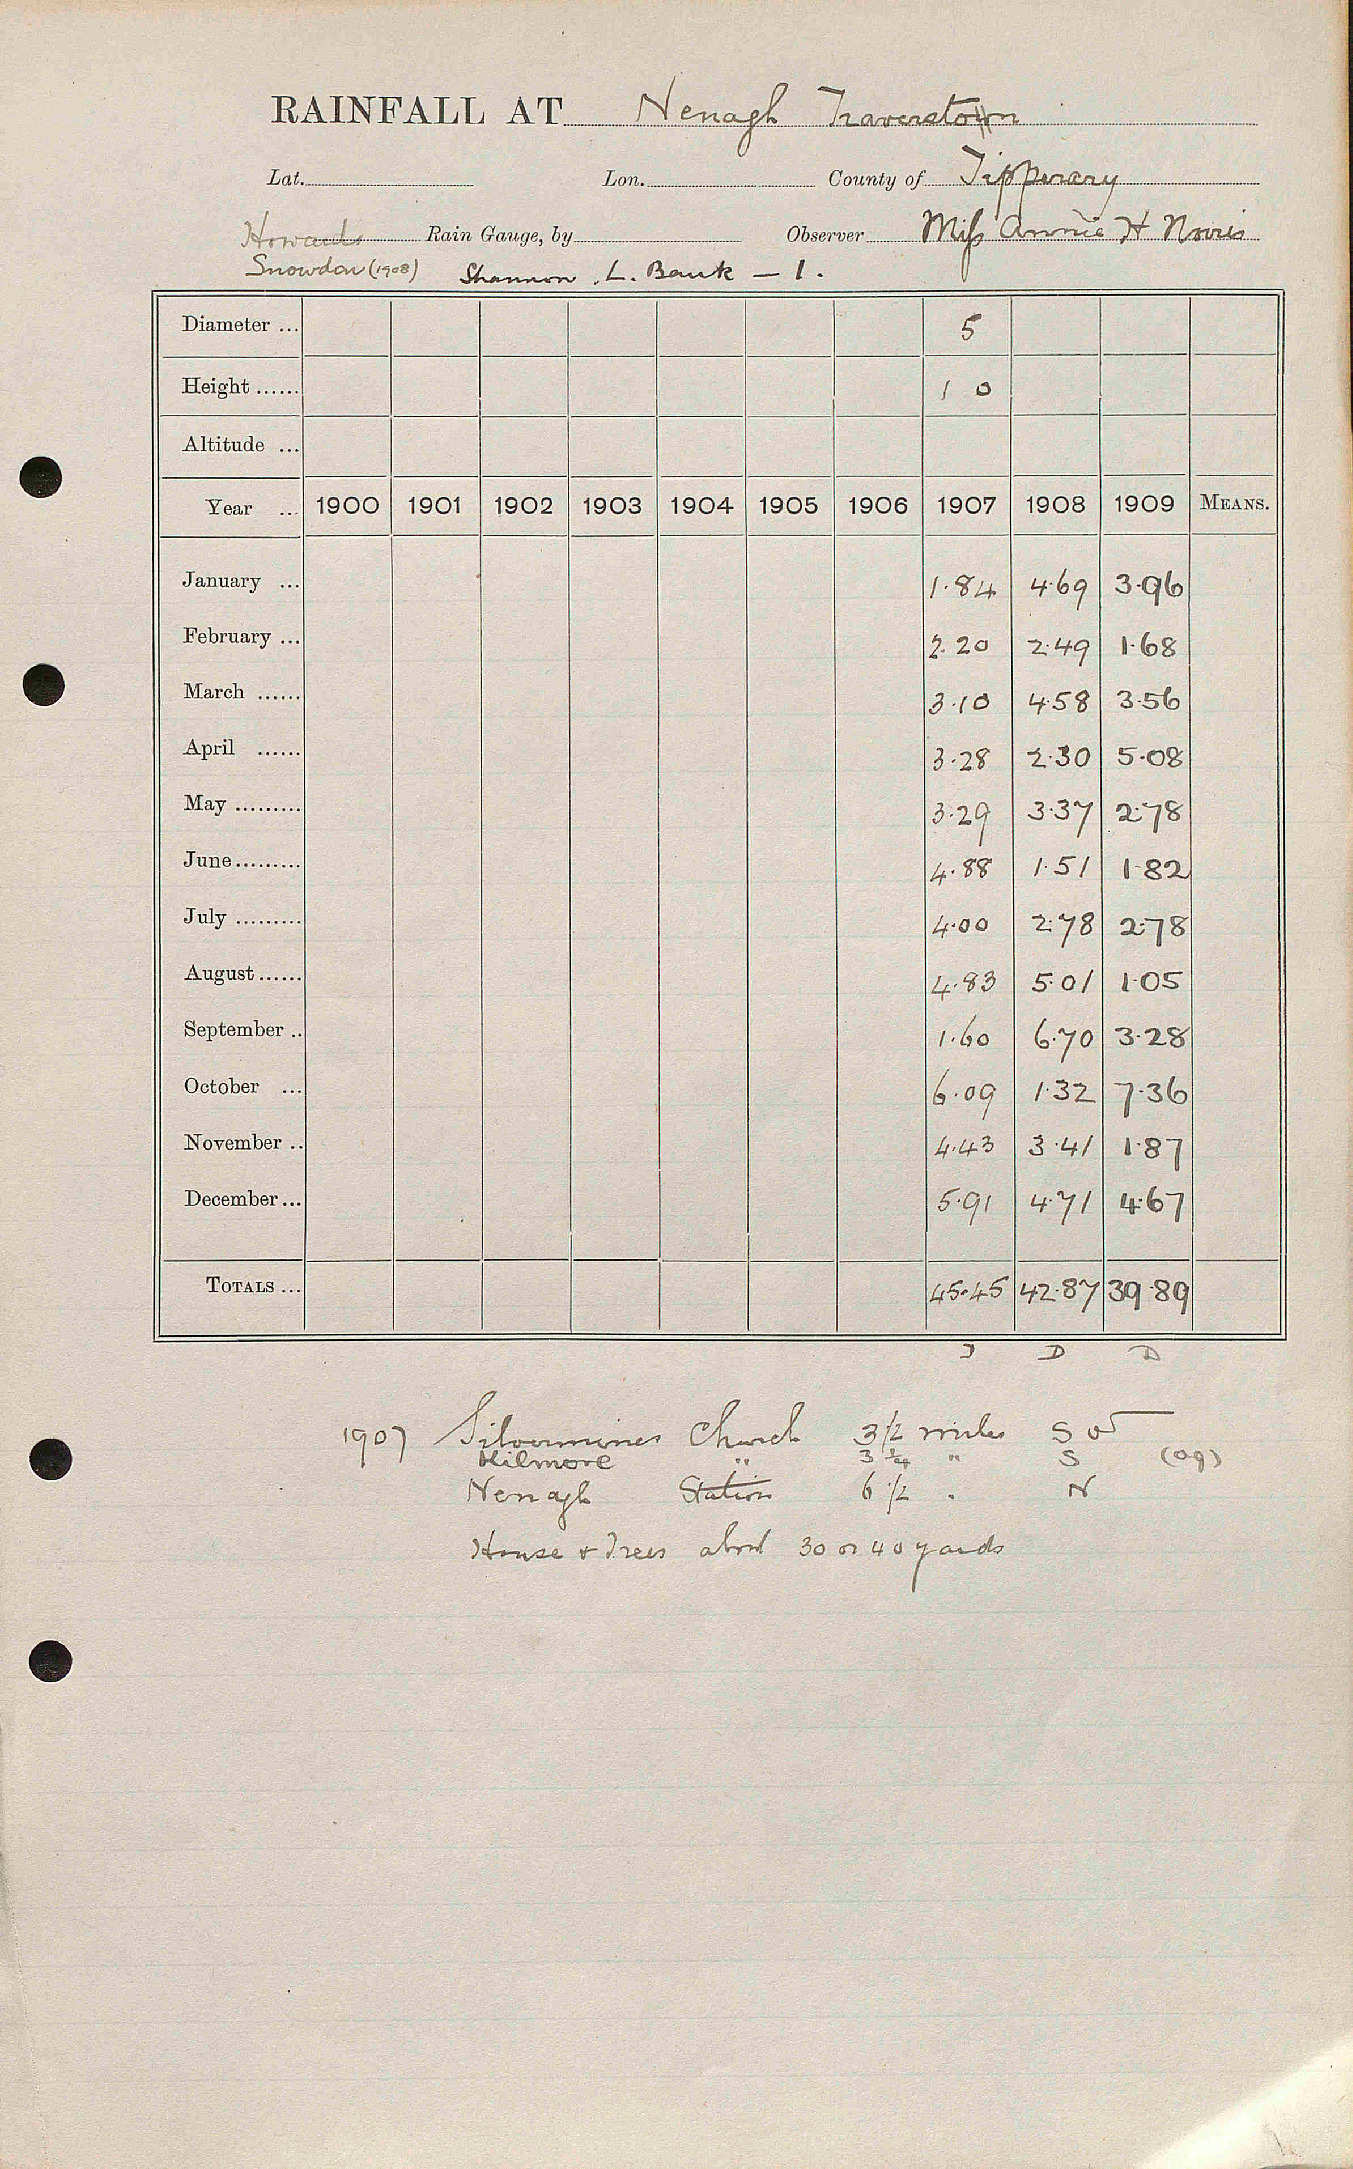 RAINFALL AT Nenagh Traverston
Lat. Lon. County of Tipperary
Howards Rain Gauge, by Observer Miss Annie H Norris
Snowdon (1908) Shannon . L. Bank — 1 .
Diameter ... 5
Height ...... 1 0
Altitude ...
Year ... 1900 1901 1902 1903 1904 1905 1906 1907 1908 1909 MEANS.
January ... 1.84 4.69 3.96
February ... 2.20 2.49 1.68
March ...... 3.10 4.58 3.56
April ...... 3.28 2.30 5.08
May ......... 3.29 3.37 2.78
June ......... 4.88 1.51 1.82
July ......... 4.00 2.78 2.78
August ...... 4.83 5.01 1.05
September .. 1.60 6.70 3.28
October ... 6.09 1.32 7.36
November .. 4.43 3.41 1.87
December ... 5.91 4.71 4.67
TOTALS ... 45.45 42.87 39.89
D D
1907 Silvermines Church 3 1/2 miles S W
Kilmore " 3 1/4 " S (09)
Nenagh Station 6 1/2 " N
House & Trees about 30 or 40 yards